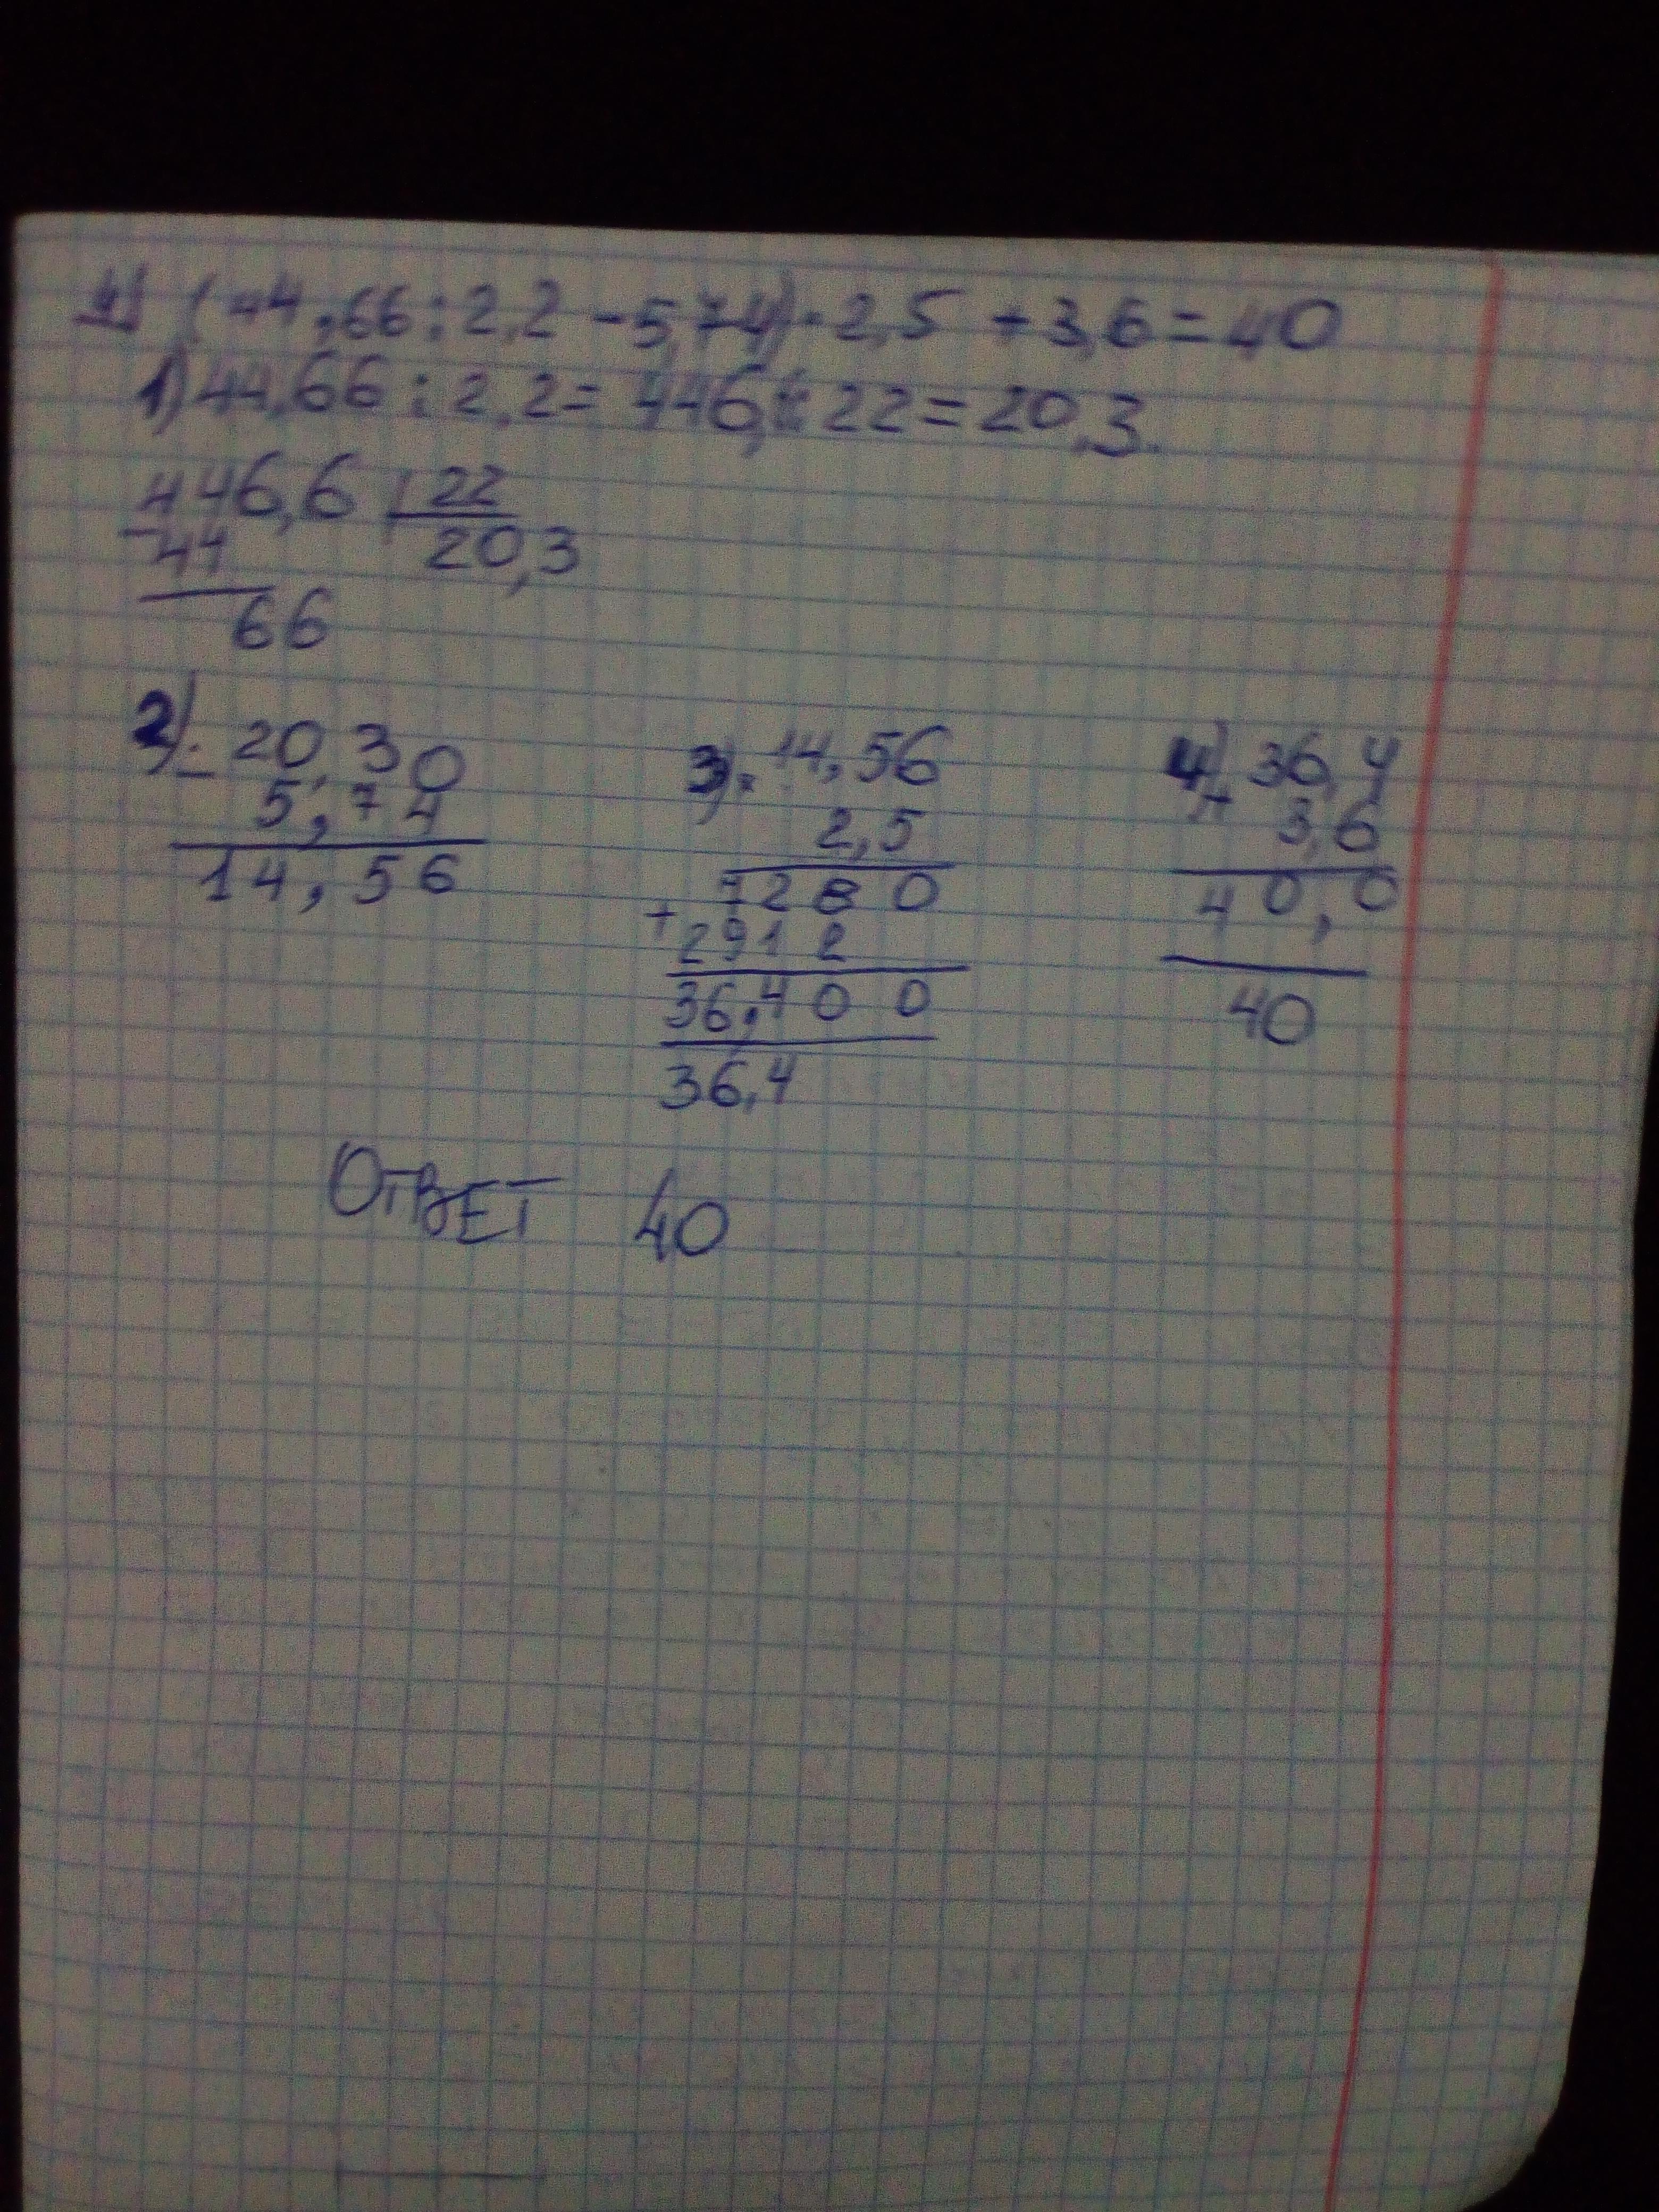 4) (44,66:2,2-5,74)·2,5+3,6=40
1) 44,66:2,2=446,6:22=20,3.
446,6 | 22
-44 20,3
66
2) - 20,30
5,74
14,56
3) × 14,56
2,5
7280
+ 2912
36,400
36,4
4) + 36,4
3,6
40,0
40
Ответ 40